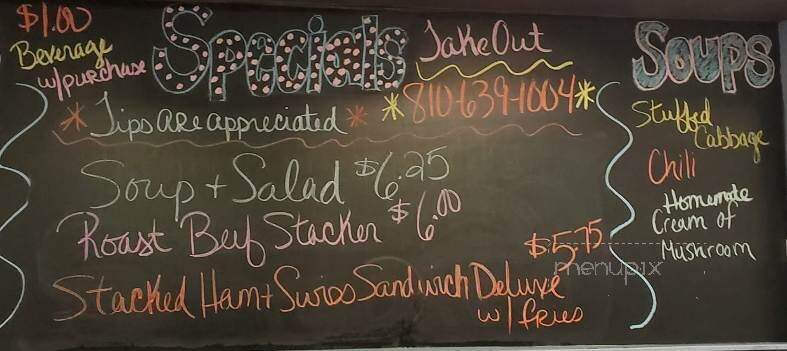 $1.00
Beverage
w/purchase
Specials
Take Out
810-639-1004
Tips are appreciated
Soup + Salad $6.25
Roast Beef Stacker $6.00
$5.75
Stacked Ham + Swiss Sandwich Deluxe
w/ fries
Soups
Stuffed
Cabbage
Chili
Homemade
Cream of
Mushroom
menupix